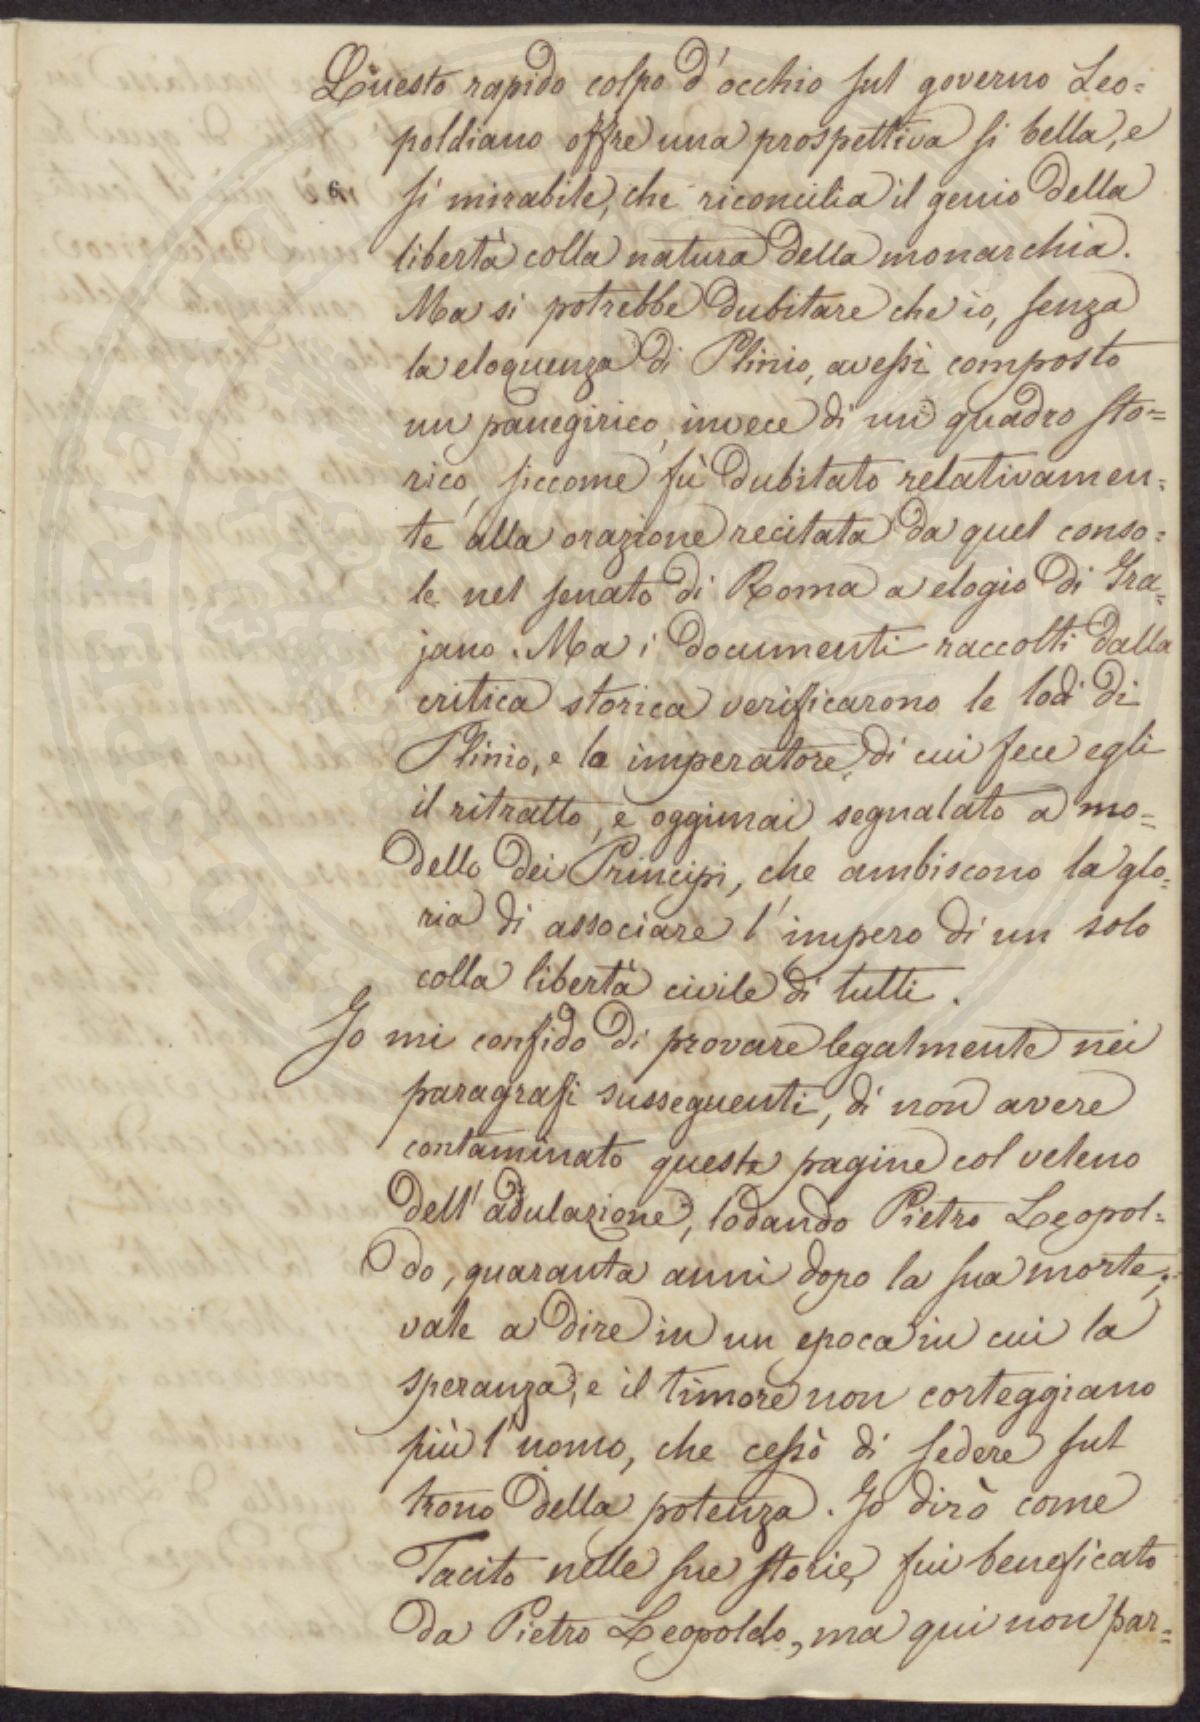 Questo rapido colpo d'occhio sul governo Leo=
poldiano offre una prospettiva si bella, e
6. si mirabile, che riconcilia il genio della
libertà colla natura della monarchia.
Ma si potrebbe dubitare che io, senza
la eloquenza di Plinio, avessi composto
un panegirico, invece di un quadro sto=
rico, siccome fù dubitato relativamen=
te alla orazione recitata da quel conso=
le nel senato di Roma a elogio di Tra=
jano. Ma i documenti raccolti dalla
critica storica verificarono le lodi di
Plinio, e lo imperatore, di cui fece egli
il ritratto, è oggimai segnalato a mo=
dello dei Principi, che ambiscono la glo=
ria di associare l'impero di un solo
colla libertà civile di tutti.
Io mi confido di provare legalmente nei
paragrafi susseguenti, di non avere
contaminato queste pagine col veleno
dell'adulazione, lodando Pietro Leopol=
do, quaranta anni dopo la sua morte;
vale a dire in un epoca in cui la
speranza, e il timore non corteggiano
più l'uomo, che cessò di sedere sul
trono della potenza. Io dirò come
Tacito nelle sue storie, fui beneficato
da Pietro Leopoldo, ma qui non par=
PROSPERITATI